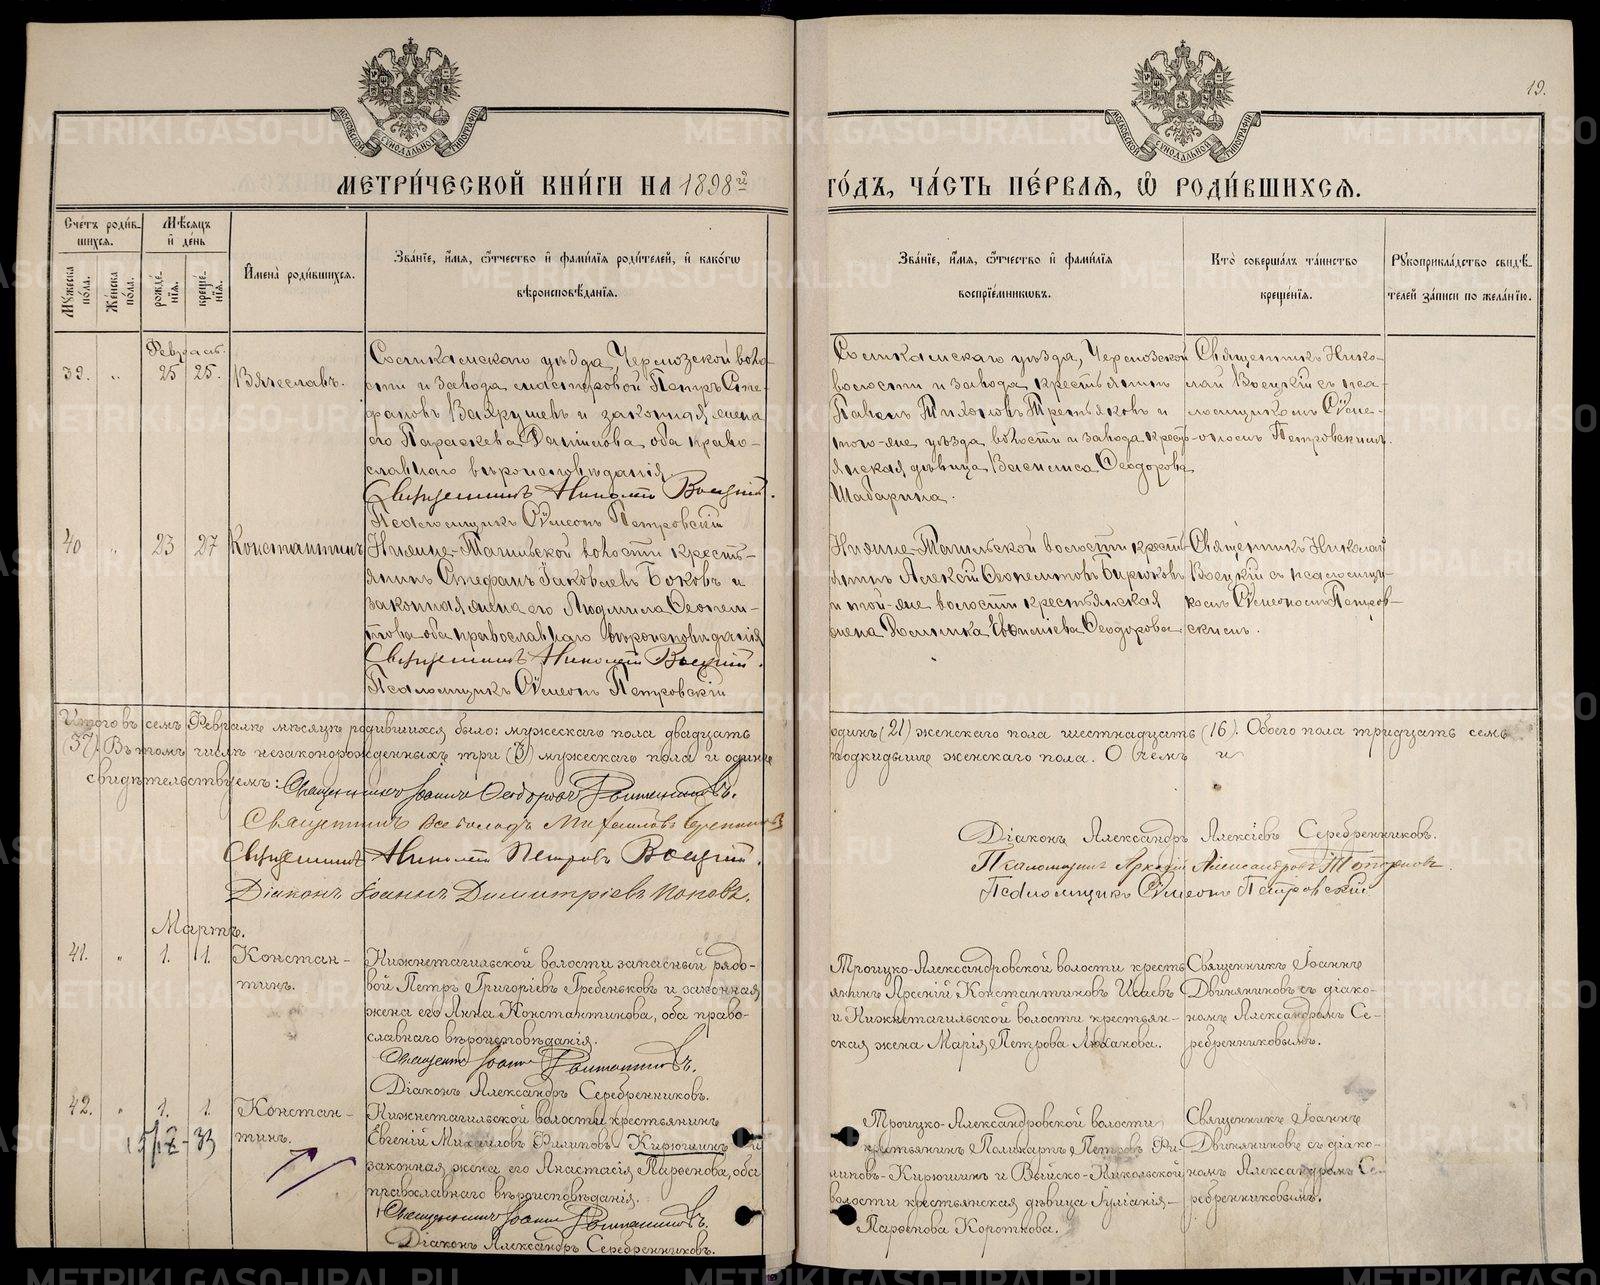 19.
МОСКОВСКОЙ СѴНОДАЛЬНОЙ ТИПОГРАФІИ
МОСКОВСКОЙ СѴНОДАЛЬНОЙ ТИПОГРАФІИ
МЕТРИ́ЧЕСКОЙ КНИ́ГИ НА 1898 й
ГО́ДЪ, ЧА́СТЬ ПЕ́РВАЯ, Ѡ҆ РОДИ́ВШИХСЯ.
Сче́тъ роди́в-
шихся.
Мѣ́сяцъ
и҆ де́нь
Мꙋ́жеска по́ла.
Же́нска по́ла.
рожде́-нїя.
креще́-нїя.
И҆мена̀ роди́вшихся.
Зва́нїе, и҆́мя, ѻ҆́тчество и҆ фами́лїя роди́телей, и҆ како́гѡ
вѣроисповѣ́данїя.
Зва́нїе, и҆́мя, ѻ҆́тчество и҆ фами́лїя
воспрїе́мникѡвъ.
Кто̀ соверша́лъ та́инство
креще́нїя.
Рꙋкоприкла́дство свидѣ́-
телей за́писи по жела́нїю.
Февраль.
39. „ 25 25. Вячеславъ.
Соликамскаго уѣзда, Чермозской воло-
сти и завода мастеровой Петръ Сте-
фановъ Вахрушевъ и законная жена
его Параскева Данилова, оба право-
славнаго вѣроисповѣданія.
Священникъ Николай Воецкій.
Псаломщикъ Сѵмеонъ Петровскій
Соликамскаго уѣзда, Чермозской
волости и завода крестьянинъ
Павелъ Тихоновъ Третьяковъ и
того-же уѣзда, волости и завода крестъ-
янская дѣвица Василиса Ѳеодорова
Шабарина.
Священникъ Нико-
лай Воецкій съ пса-
ломщикомъ Сѵме-
ономъ Петровскимъ.
40 „ 23 27 Константинъ
Нижне-Тагильской волости кресть-
янинъ Стефанъ Іаковлевъ Боковъ и
законная жена его Людмила Ѳеопем-
птова, оба православнаго вѣроисповѣданія
Священникъ Николай Воецкій.
Псаломщикъ Сѵмеонъ Петровскій
Нижне-Тагильской волости кресть-
янинъ Алексій Ѳеопемптовъ Бирюковъ
и той-же волости крестьянская
жена Домника Ѳеодорова
Священникъ Николай
Воецкій съ псаломщи-
комъ Сѵмеономъ Петров-
скимъ.
Итого въ семъ Февралѣ мѣсяцѣ родившихся было: мужескаго пола двадцать
одинъ (21) женскаго пола шестнадцать (16). Обоего пола тридцать семь
(37). Въ томъ числѣ незаконорожденныхъ три (3) мужескаго пола и одинъ
подкидышъ женскаго пола. О чемъ и
свидѣтельствуемъ: Священникъ Іоаннъ Ѳеодоровъ Двиняниновъ.
Священникъ Всеволодъ Михаиловъ
Священникъ Николай Петровъ Воецкій.
Діаконъ Іоаннъ Димитріевъ Поповъ.
Діаконъ Александръ Алексіевъ Серебренниковъ.
Псаломщикъ Аркадій Александровъ Топорковъ.
Псаломщикъ Сѵмеонъ Петровскій
Мартъ.
41. „ 1. 1. Констан-
тинъ.
Нижнетагильской волости запасный рядо-
вой Петръ Григоріевъ Гребеньковъ и законная
жена его Анна Константинова, оба право-
славнаго вѣроисповѣданія.
Священникъ Іоаннъ Двиняниновъ.
Діаконъ Александръ Серебренниковъ.
Троицко-Александровской волости кресть-
янинъ Арсеній Константиновъ Исаевъ
и Нижнетагильской волости крестьян-
ская жена Марія Петрова Люханова.
Священникъ Іоаннъ
Двиняниновъ съ діако-
номъ Александромъ Се-
ребренниковымъ.
42. „ 1. 1. Констан-
тинъ.
15/IX-33
Нижнетагильской волости крестьянинъ
Евгеній Михаиловъ Филиповъ-Кирюшинъ и
законная жена его Анастасія Парѳенова, оба
православнаго вѣроисповѣданія.
Священникъ Іоаннъ Двиняниновъ.
Діаконъ Александръ Серебренниковъ.
Троицко-Александровской волости
крестьянинъ Поликарпъ Петровъ Фи-
липовъ-Кирюшинъ и Выйско-Никольской
волости крестьянская дѣвица Іуліанія
Парѳенова Короткова.
Священникъ Іоаннъ
Двиняниновъ съ діако-
номъ Александромъ Се-
ребренниковымъ.
METRIKI.GASO-URAL.RU